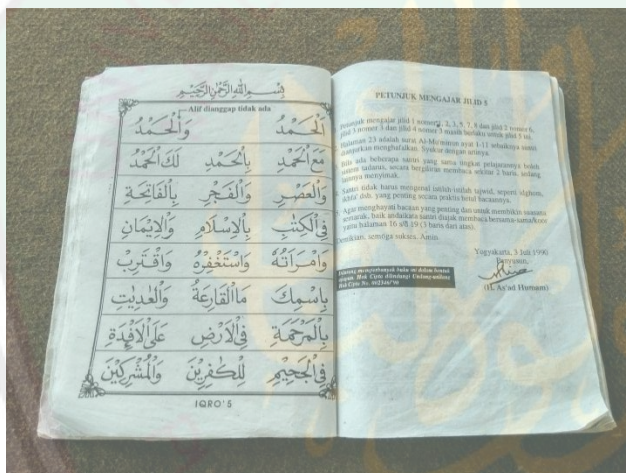 بِسْمِ اللهِ الرَّحْمٰنِ الرَّحِيْمِ
Alif dianggap tidak ada
اَلْحَمْدُ وَالْحَمْدُ
مَعَ الْحَمْدِ بِالْحَمْدِ لَكَ الْحَمْدُ
وَالْعَصْرِ وَالْفَجْرِ بِالْفَاتِحَةِ
فِى الْكِتٰبِ بِالْاِسْلَامِ وَالْاِيْمَانِ
وَامْرَاَتُهُ وَاسْتَغْفِرْهُ وَاقْتَرِبْ
بِاسْمِكَ مَاالْقَارِعَةُ وَالْعٰدِيٰتِ
بِالْمَرْحَمَةِ فِى الْاَرْضِ عَلَى الْاَفْئِدَةِ
فِى الْجَحِيْمِ لِلْكٰفِرِيْنَ وَالْمُشْرِكِيْنَ
IQRO' 5
PETUNJUK MENGAJAR JILID 5
Petunjuk mengajar jilid 1 nomer 1, 2, 3, 5, 7, 8 dan jilid 2 nomer 6,
jilid 3 nomer 3 dan jilid 4 nomer 3 masih berlaku untuk jilid 5 ini.
Halaman 23 adalah surat Al-Mu'minun ayat 1-11 sebaiknya santri
dianjurkan menghafalkan. Syukur dengan artinya.
Bila ada beberapa santri yang sama tingkat pelajarannya boleh
sistem tadarus, secara bergiliran membaca sekitar 2 baris, sedang
lainnya menyimak.
Santri tidak harus mengenal istilah-istilah tajwid, seperti idghom,
ikhfa' dsb. yang penting secara praktis betul bacaannya.
Agar menghayati bacaan yang penting dan untuk membikin suasana
semarak, baik andaikata santri diajak membaca bersama-sama/koor
yaitu halaman 16 s/d 19 (3 baris dari atas).
Demikian, semoga sukses. Amin.
Yogyakarta, 3 Juli 1990
Penyusun,
(H. As'ad Humam)
Dilarang memperbanyak buku ini dalam bentuk
apapun. Hak Cipta dilindungi Undang-undang
Hak Cipta No.